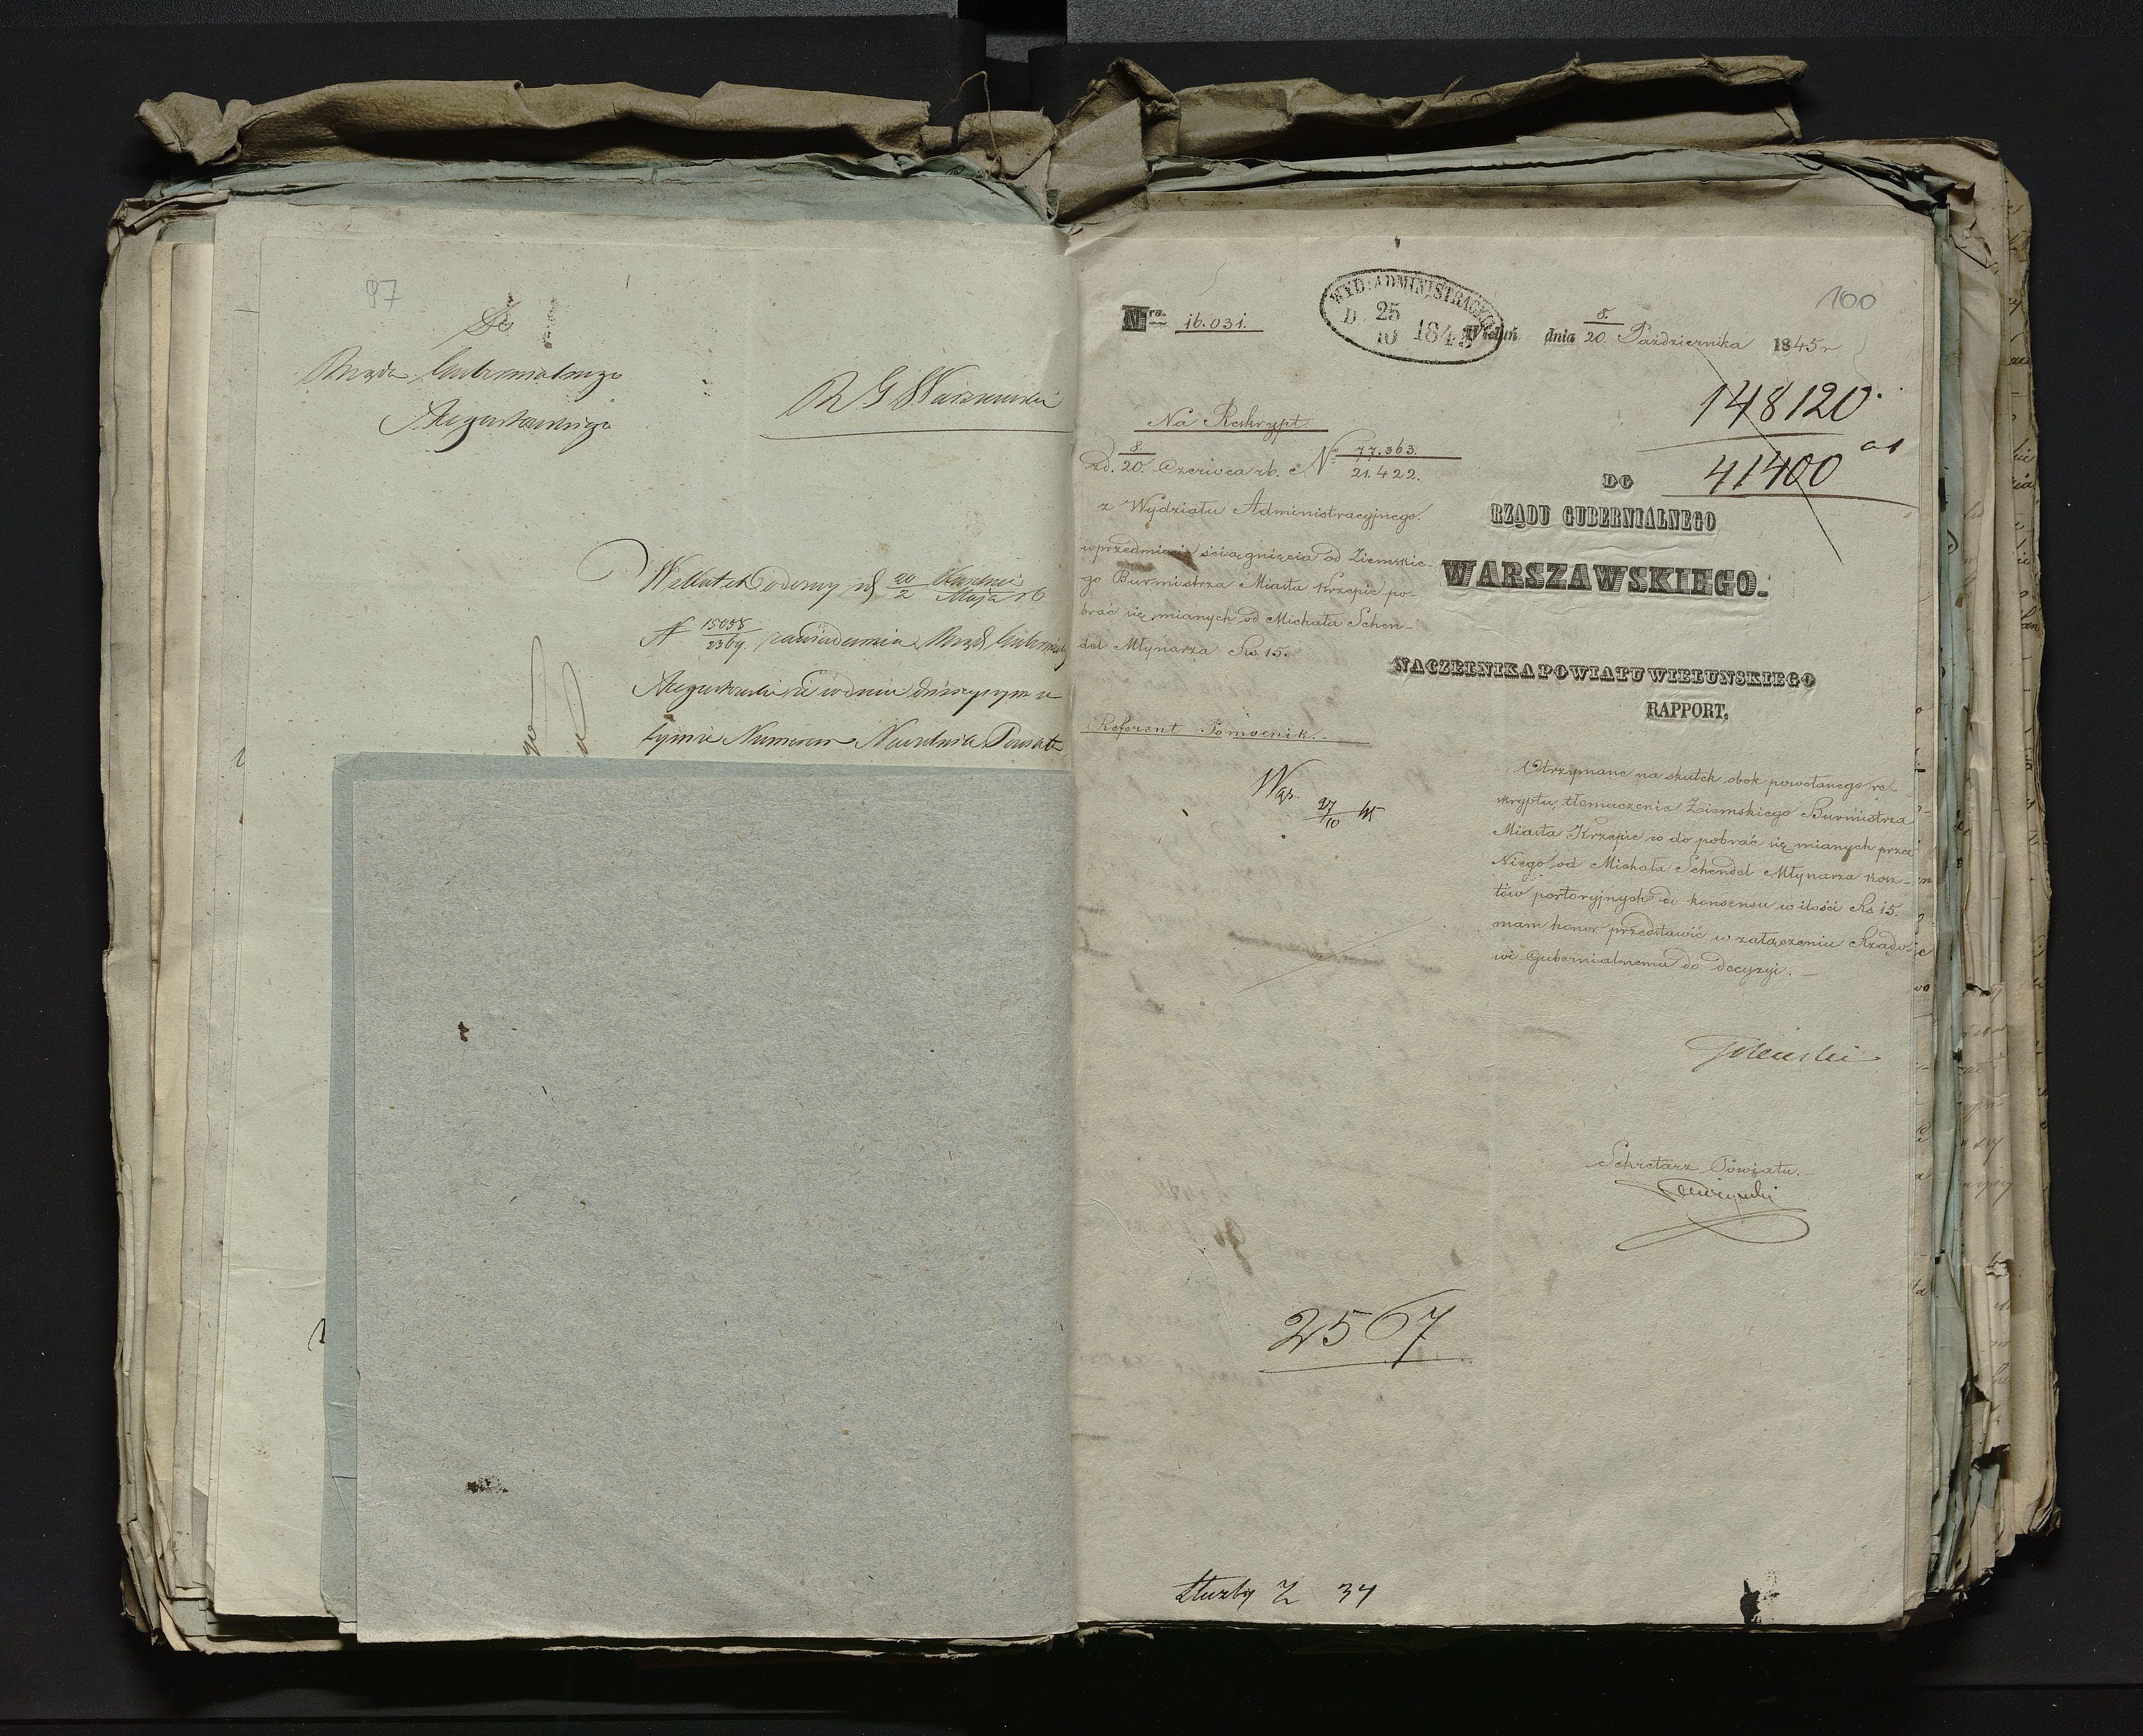 97
Do
Rządu Gubernialnego
Augustowskiego
R G Warszawski
Wskutek Odezwy z d 20/2 Kwietnia/Maja rb
N 15098/2369. zawiadamia Rząd Gubernialny
Augustowski iż w dniu dzisiejszym w
tymże Numerze Naczelnika Powiatu
100
Nro. 16.031.
WYD: ADMINISTRACYJNY
D 25/10 1845
Wieluń dnia 8./20. Października 1845 r
148120.
41400
Na Reskrypt
z d. 8./20. Czerwca rb. No 77.363./21.422.
z Wydziału Administracyjnego.
w przedmiocie ściągnięcia od Ziemskie-
go Burmistrza Miasta Krzepic po-
brać się mianych od Michała Schen-
del Młynarza Rs 15.
Referent Pomocnik.
27/10 45
DO
RZĄDU GUBERNIALNEGO
WARSZAWSKIEGO.
NACZELNIKA POWIATU WIELUNSKIEGO
RAPPORT,
Otrzymane na skutek obok powołanego re-
skryptu, tłomaczenie Ziemskiego Burmistrza
Miasta Krzepic co do pobrać się mianych przez
Niego od Michała Schendel Młynarza kosz-
tów portoryjnych do konsensu w ilości Rs 15.
mam honor przedstawić w załączeniu Rządo-
wi Gubernialnemu do decyzyi.
Sekretarz Powiatu.
2567
Służby Z 34